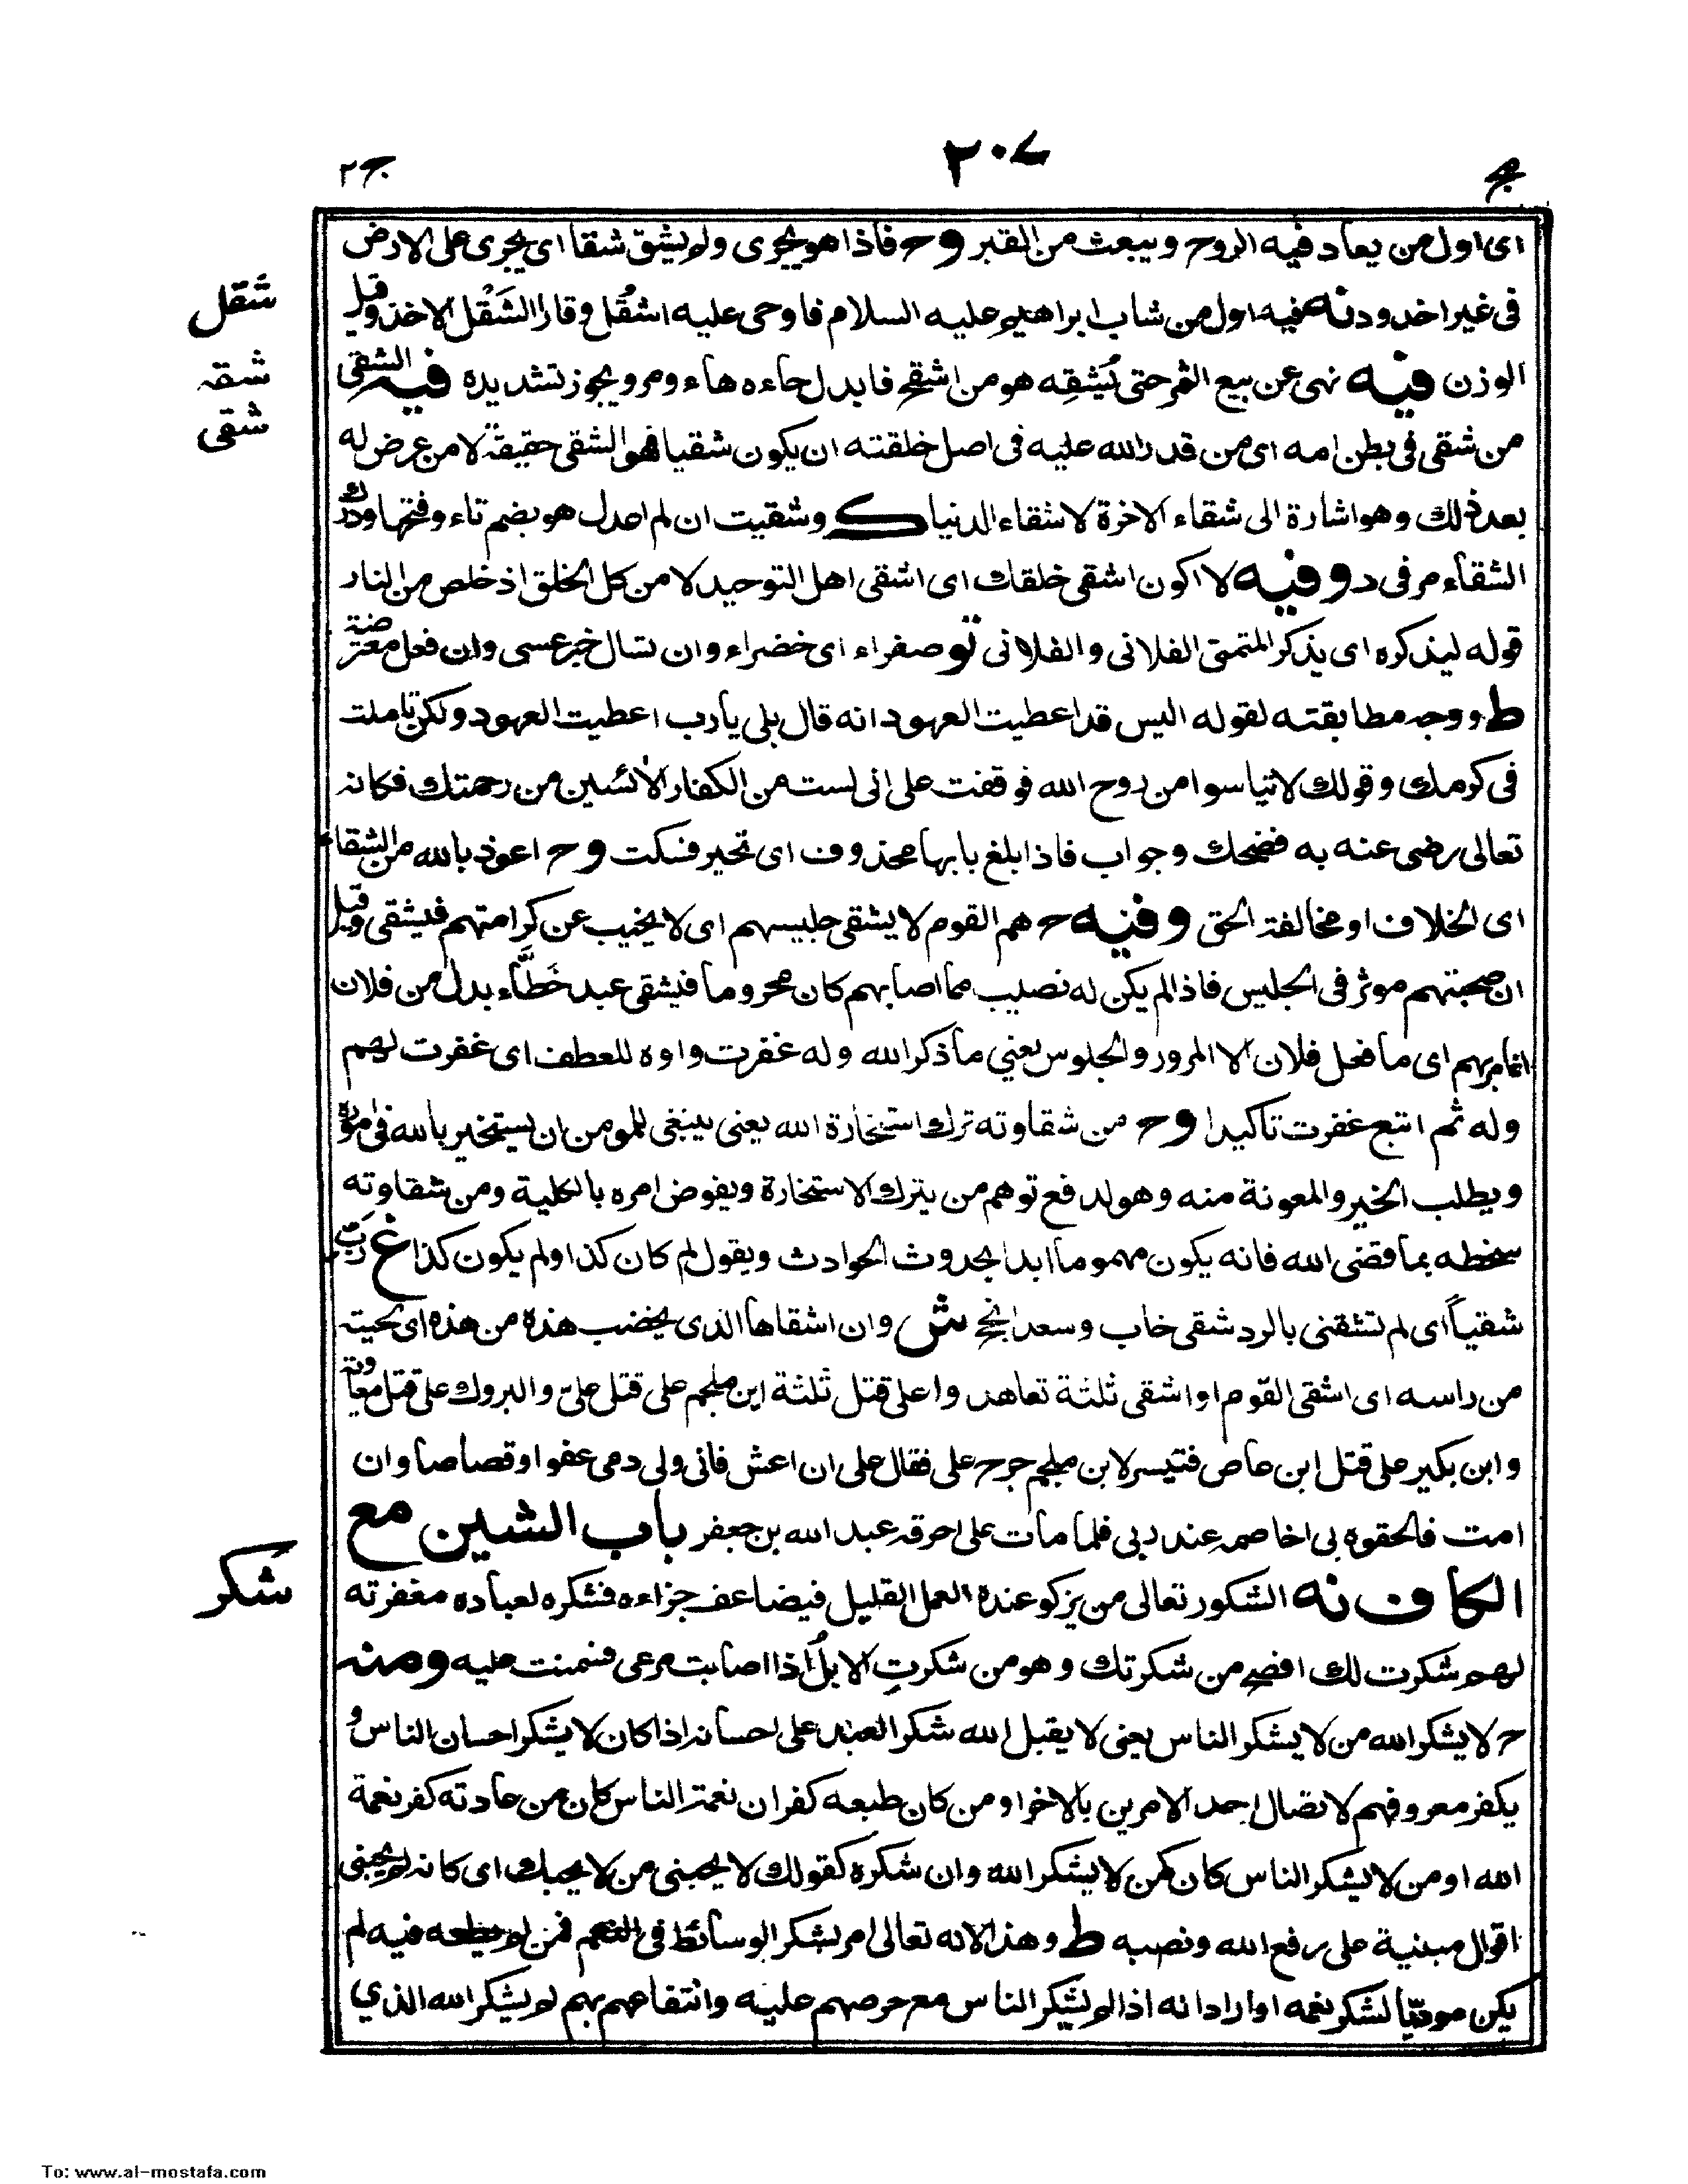 ٢٠٧
ج٢
اى اول من يعاد فيه الروح ويبعث من القبر وح فاذا هو يجرى ولم يشق شقا اى يجرى على الارض
فى غير اخدود نه فيه اول من شاب ابراهيم عليه السلام فاوحى عليه اشقُل وقارا الشَقْل الاخذ وقيل
شقل
الوزن فيه نهى عن بيع الثمر حتى يُشقِه هو من اشقح فابدل حاءه هاء ومر ويجوز تشديده فيه الشقى
شقه
من شقى فى بطن امه اى من قدر الله عليه فى اصل خلقته ان يكون شقيا فهو الشقى حقيقة لا من عرض له
شقى
بعد ذلك وهو اشارة الى شقاء الاخرة لا شقاء الدنيا ك وشقيت ان لم اعدل هو بضم تاء وفتحها ودرك
الشقاء مر فى د وفيه لا اكون اشقى خلقك اى اشقى اهل التوحيد لا من كل الخلق اذ خلص من النار
قوله ليذكره اى يذكر المتمنى الفلانى والفلانى تو صفراء اى خضراء وان تسال خبر عسى وان فعل معترضة
ط ووجه مطابقته لقوله اليس قد اعطيت العهود انه قال بلى يا رب اعطيت العهود ولكن تاملت
فى كرمك وقولك لا تياسوا من روح الله فوقفت على انى لست من الكفار الائسين من رحمتك فكانه
تعالى رضى عنه به فضحك وجواب فاذا بلغ بابها محذوف اى تحير فسكت وح اعوذ بالله من الشقاء
اى الخلاف او مخالفة الحق وفيه ح هم القوم لا يشقى جليسهم اى لا يخيب عن كرامتهم فيشقى وقيل
ان صحبتهم موثر فى الجليس فاذا لم يكن له نصيب مما اصابهم كان محروما فيشقى عبد خَطَّاء بدل من فلان
انما مر بهم اى ما فعل فلان الا المرور والجلوس يعني ما ذكر الله وله غفرت واوه للعطف اى غفرت لهم
وله ثم اتبع غفرت تاكيدا وح من شقاوته ترك استخارة الله يعنى ينبغى للمومن ان يستخير بالله فى اموره
ويطلب الخير والمعونة منه وهو لدفع توهم من يترك الاستخارة ويفوض امره بالكلية ومن شقاوته
سخطه بما قضى الله فانه يكون مهموما ابدا لحدوث الحوادث ويقول لم كان كذا ولم يكون كذا غ رَبِّ
شقياً اى لم تشقنى بالرد شقى خاب وسعد انجح ش وان اشقاها الذى يخضب هذه من هذه اى لحيته
من راسه اى اشقى القوم او اشقى ثلثة تعاهدوا على قتل ثلثة ابن ملجم على قتل على والبروك على قتل معاوية
وابن بكير على قتل ابن عاص فتيسر لابن ملجم جرح على فقال على ان اعش فانى ولى دمى عفوا وقصاصا وان
امت فالحقوه بى اخاصمه عند ربى فلما مات على احرقه عبد الله بن جعفر باب الشين مع
الكاف نه الشكور تعالى من يزكو عنده العمل القليل فيضاعف جزاءه فشكره لعباده مغفرته
شكر
لهم شكرت لك افصح من شكرتك وهو من شكرتِ الابلُ اذا اصابت مرعى فسمنت عليه ومنه
ح لا يشكر الله من لا يشكر الناس يعنى لا يقبل الله شكر العبد على احسانه اذا كان لا يشكر احسان الناس و
يكفر معروفهم لاتصال احد الامرين بالاخر او من كان طبعه كفران نعمة الناس كان من عادته كفر نعمة
الله او من لا يشكر الناس كان كمن لا يشكر الله وان شكره كقولك لا يحبنى من لا يحبك اى كانه لم يحبنى
اقوال مبنية على رفع الله ونصبه ط وهذا لانه تعالى امر بشكر الوسائط فى النعم فمن لم يطعه فيه لم
يكن موديا لشكر نعمه او اراد انه اذا لم يشكر الناس مع حرصهم عليه وانتفاعهم بهم لم يشكر الله الذي
To: www.al-mostafa.com